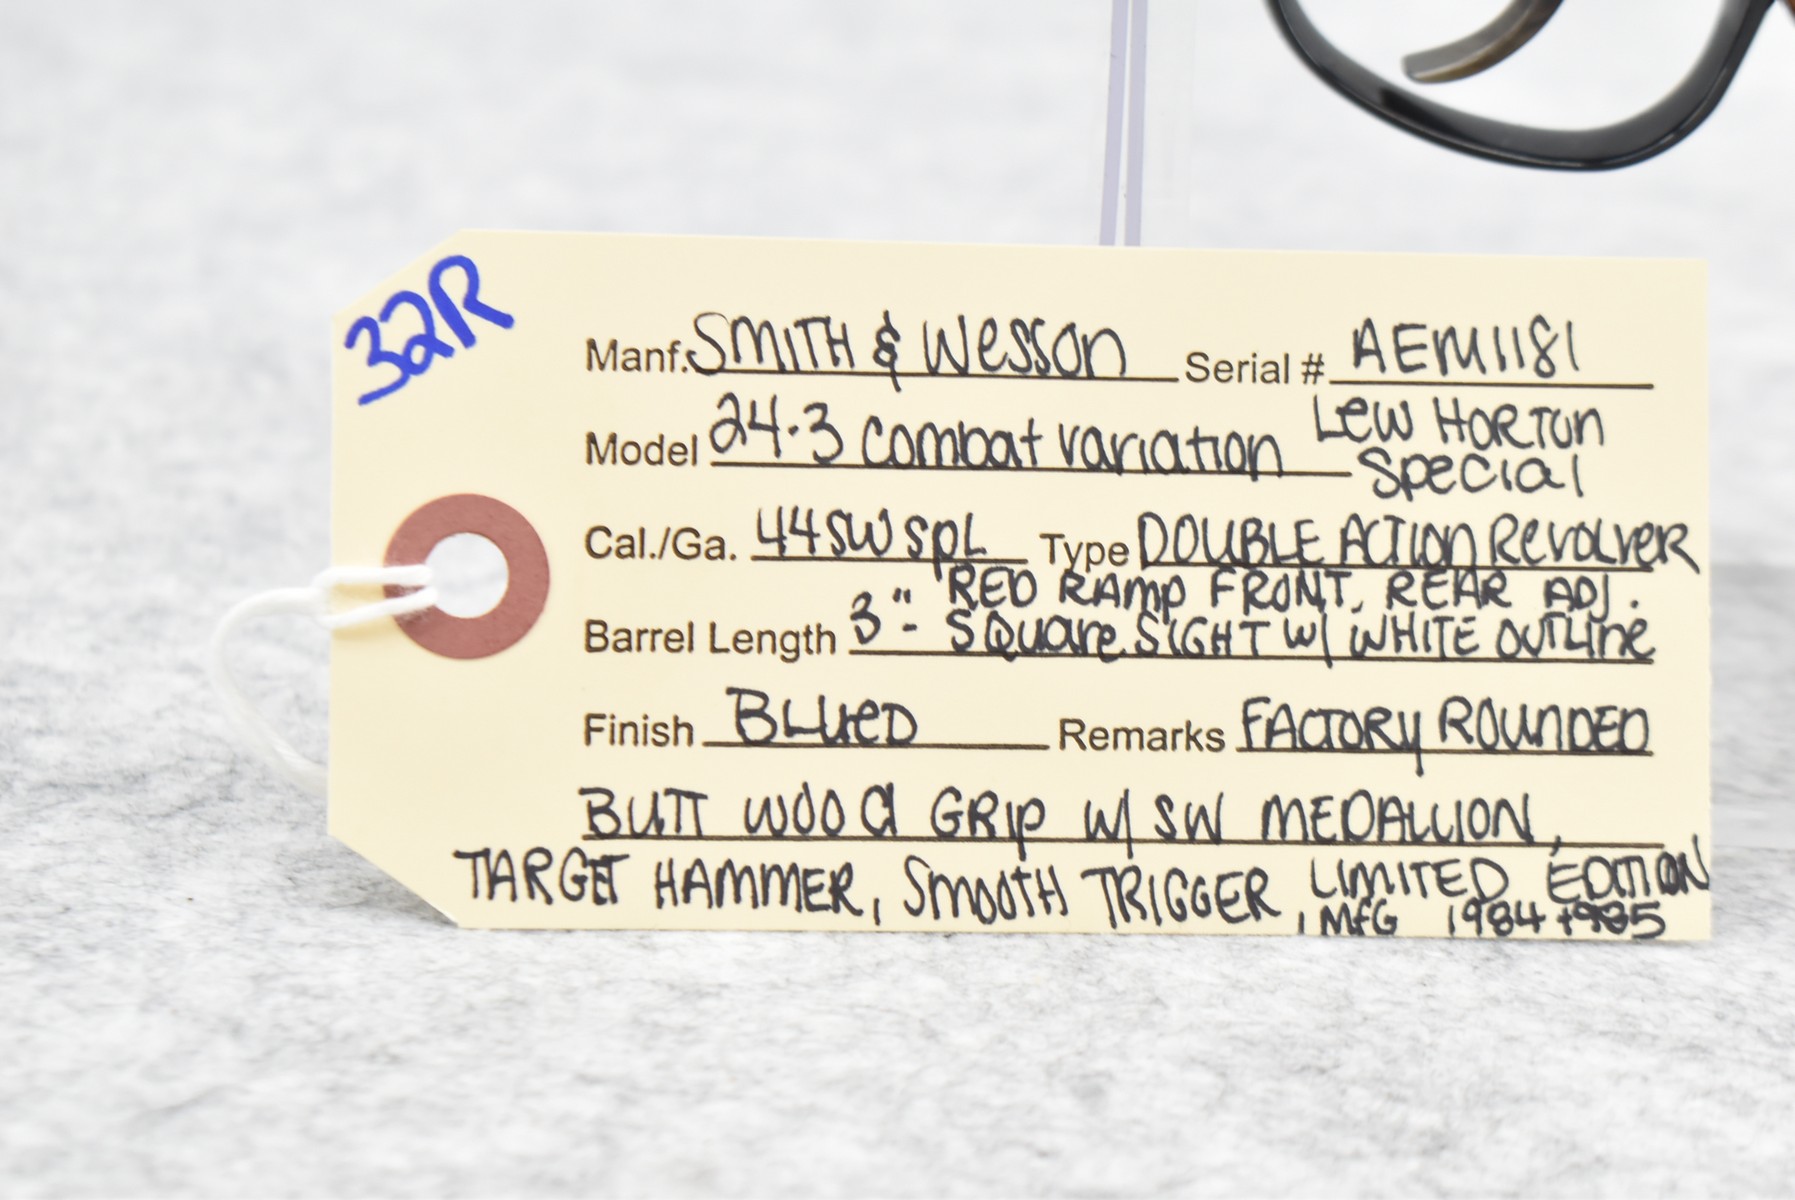 32R
Manf. SMITH & Wesson Serial # AEM1181
Model 24-3 Combat variation Lew HORTON
Special
Cal./Ga. 44SW SPL Type DOUBLE ACTION REVOLVER
RED RAMP FRONT, REAR ADJ.
Barrel Length 3" - SQuare SIGHT W/ WHITE OUTLine
Finish BLUeD Remarks FACTORY ROUNDED
BUTT WOOd GRIP W/ SW MEDALLION,
TARGET HAMMER, SMOOTH TRIGGER, LIMITED EDITION
, MFG 1984 + 985